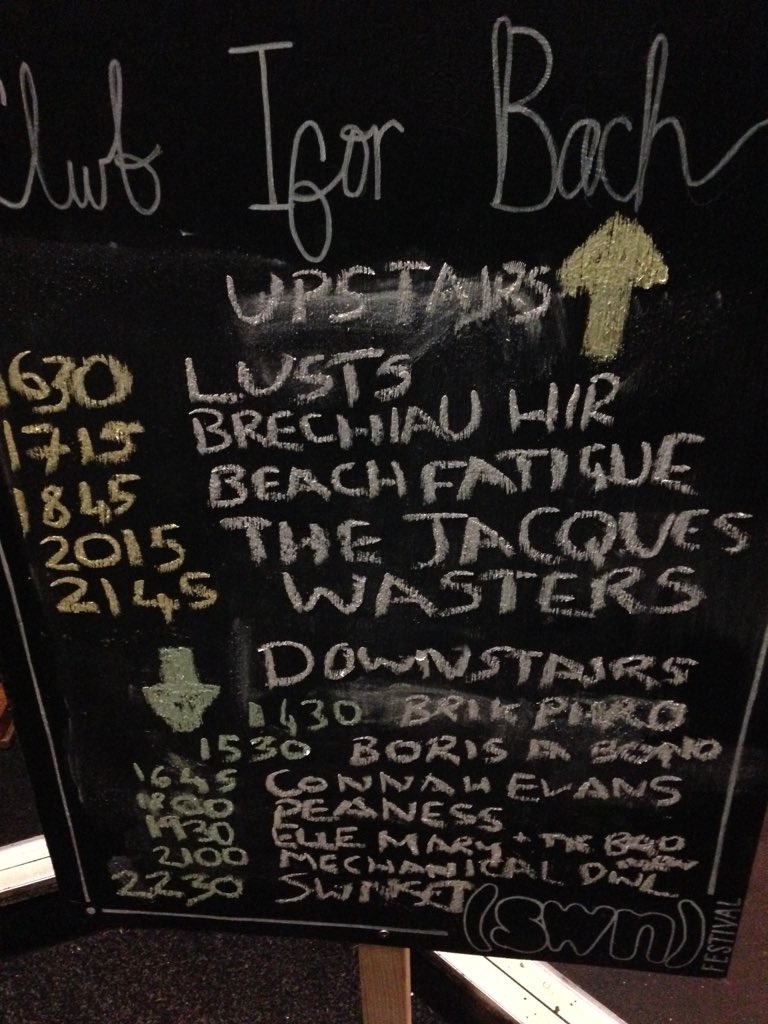 Club Igor Bach
UPSTAIRS
1630 LUSTS
1715 BRECHIAU HIR
1845 BEACH FATIGUE
2015 THE JACQUES
2145 WASTERS
DOWNSTAIRS
1430
1530 BORIS A BONO
1645 CONNAH EVANS
1800 PEANESS
1930 ELLE MARY + THE BAD
2100 MECHANICAL OWL
2230
(swn)
FESTIVAL